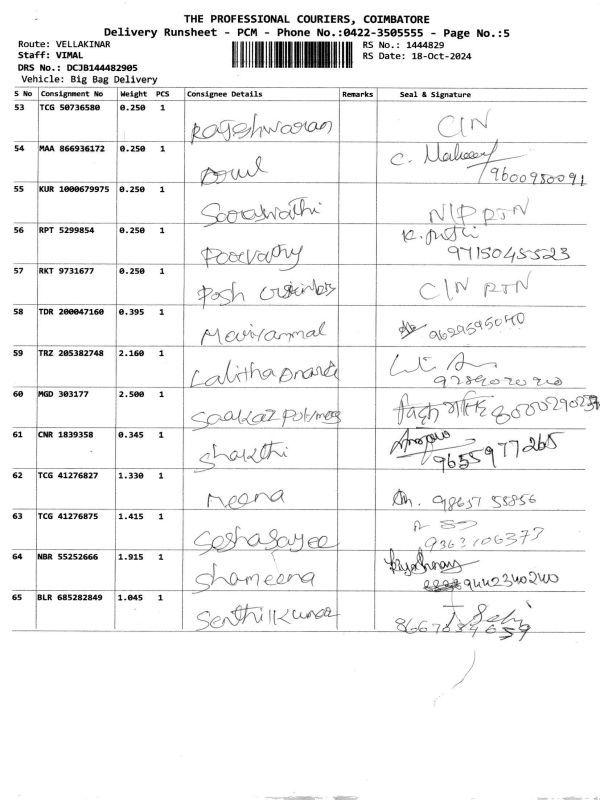 THE PROFESSIONAL COURIERS, COIMBATORE
Delivery Runsheet - PCM - Phone No.:0422-3505555 - Page No.:5
Route: VELLAKINAR RS No.: 1444829
Staff: VIMAL RS Date: 18-Oct-2024
DRS No.: DCJB144482905
Vehicle: Big Bag Delivery
S No Consignment No Weight PCS Consignee Details Remarks Seal & Signature
53 TCG 50736580 0.250 1 Rajeshwaran CIN
54 MAA 866936172 0.250 1 9600950091
55 KUR 1000679975 0.250 1 Saraswathi
56 RPT 5299854 0.250 1 Poorvathy 9715045523
57 RKT 9731677 0.250 1 Posh CIN RTN
58 TDR 200047160 0.395 1 Mariyammal 9629595040
59 TRZ 205382748 2.160 1
60 MGD 303177 2.500 1
61 CNR 1839358 0.345 1 Shakthi 9655977265
62 TCG 41276827 1.330 1 Meena 98657 55856
63 TCG 41276875 1.415 1 Seshasayee 9363106373
64 NBR 55252666 1.915 1 Shameena 9442340240
65 BLR 685282849 1.045 1 Senthilkumar